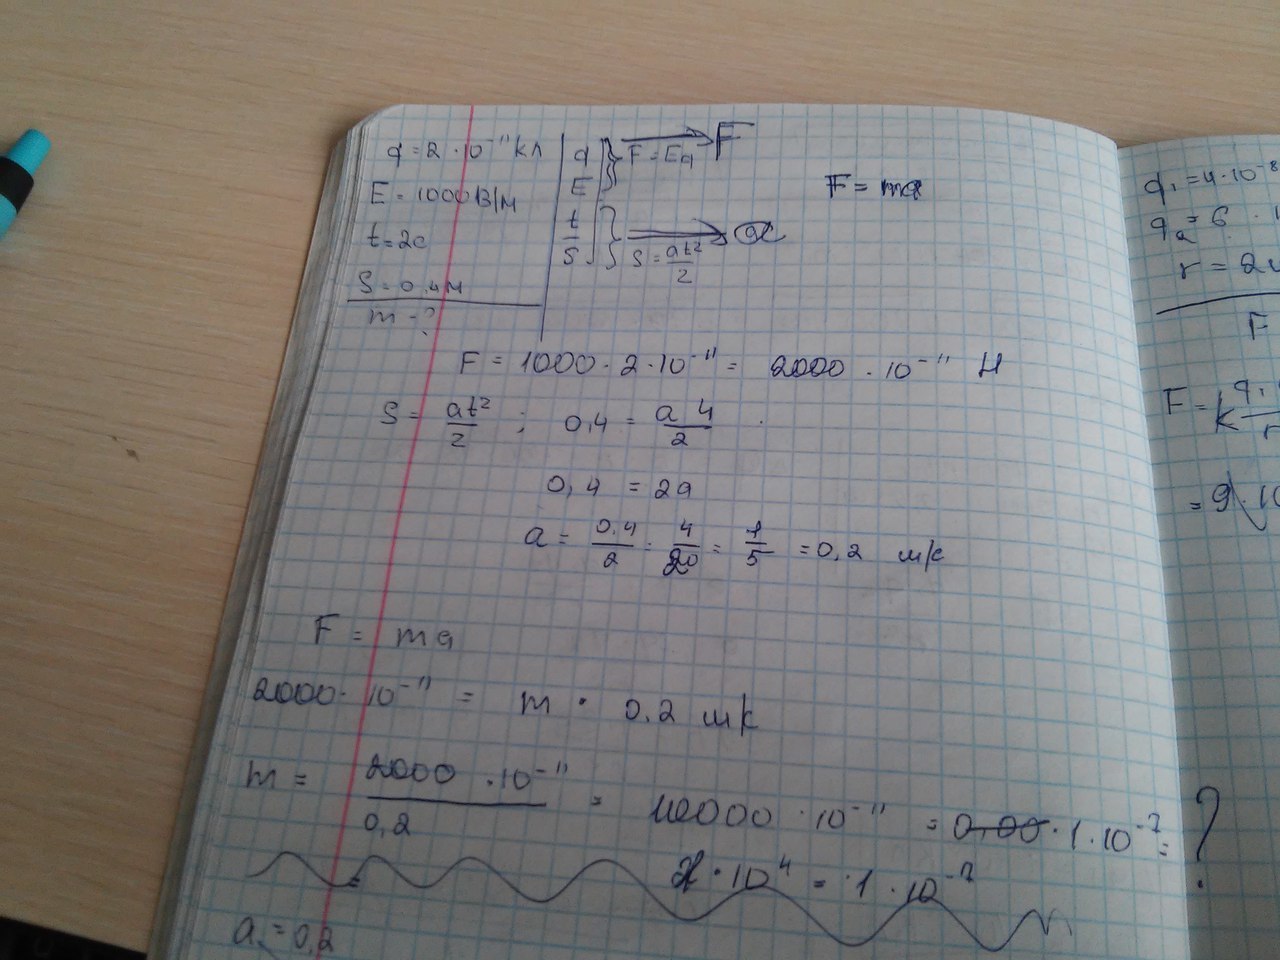 q = 2 · 10⁻¹¹ Кл
E = 1000 В/м
t = 2с
S = 0,4м
m - ?
q
E
F = Eq
F
t
S
S = at²/2
a
F = ma
F = 1000 · 2 · 10⁻¹¹ = 2000 · 10⁻¹¹ Н
S = at²/2 ; 0,4 = a 4/2
0,4 = 2a
a = 0,4/2 = 4/20 = 1/5 = 0,2 м/с
F = ma
2000 · 10⁻¹¹ = m · 0,2 м/с
m = 2000 · 10⁻¹¹/0,2 = 10000 · 10⁻¹¹ = 0,00 · 1 · 10⁻⁷ = ?
· 10⁴ = · 1 · 10⁻⁷
a = 0,2
q₁ = 4 · 10⁻⁸
q₂ = 6 ·
r = 2
F
F = k q₁
r
= 9 · 10